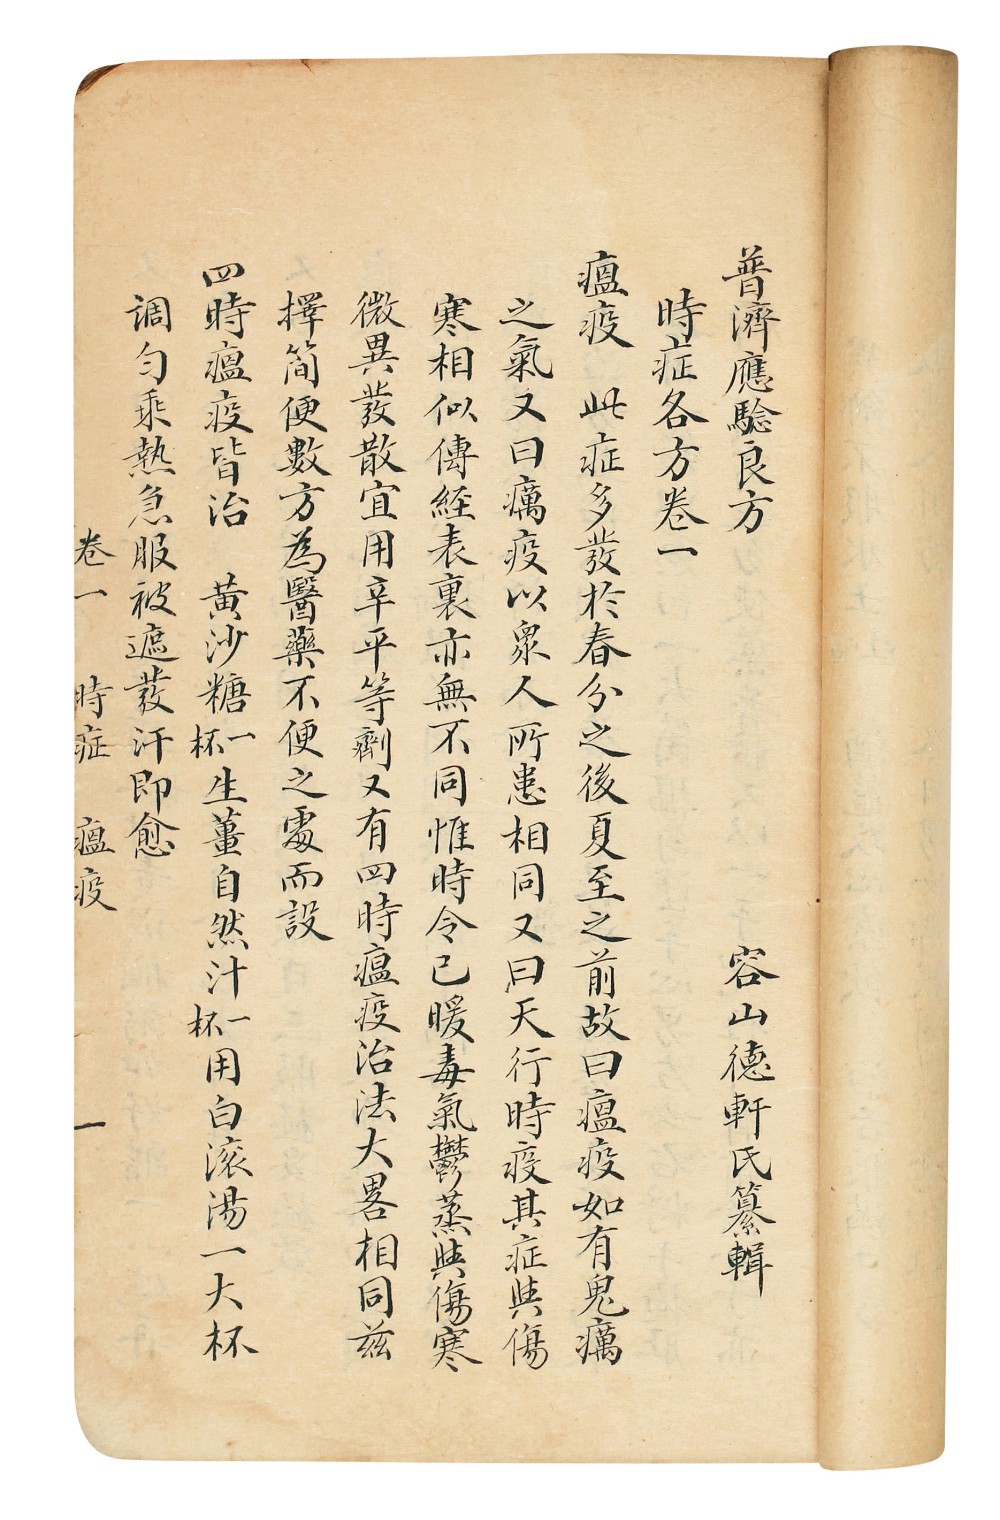 普濟應驗良方　容山德軒氏纂輯
時症各方卷一
瘟疫　此症多發於春分之後夏至之前故曰瘟疫如有鬼癘
之氣又曰癘疫以衆人所患相同又曰天行時疫其症與傷
寒相似傳經表裏亦無不同惟時令已暖毒氣鬱蒸與傷寒
微異發散宜用辛平等劑又有四時瘟疫治法大畧相同茲
擇簡便數方為醫藥不便之處而設
四時瘟疫皆治　黃沙糖一杯生薑自然汁一杯用白滚湯一大杯
調勻乘熱急服被遮發汗即愈
卷一　時症　瘟疫　一